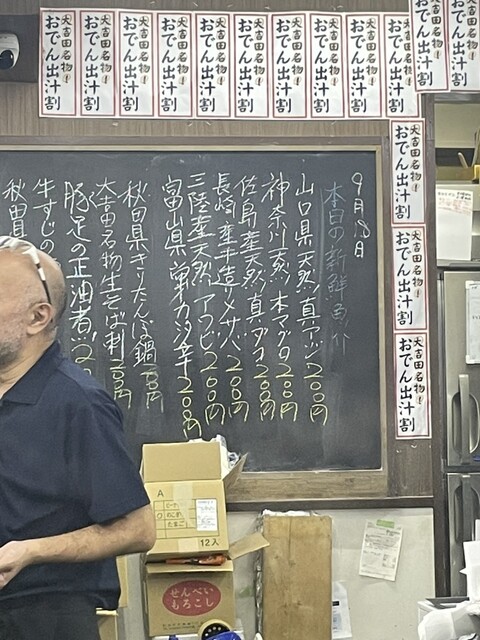 大吉田名物!
おでん出汁割
大吉田名物!
おでん出汁割
大吉田名物!
おでん出汁割
大吉田名物!
おでん出汁割
大吉田名物!
おでん出汁割
大吉田名物!
おでん出汁割
大吉田名物!
おでん出汁割
大吉田名物!
おでん出汁割
大吉田名物!
おでん出汁割
大吉田名物!
おでん出汁割
大吉田名物!
おでん出汁割
大吉田名物!
おでん出汁割
大吉田名物!
おでん出汁割
大吉田名物!
おでん出汁割
9月18日
本日の新鮮魚介
山口県天然真アジ200円
神奈川天然本マグロ200円
佐島産天然真ダコ200円
長崎産手造〆サバ200円
三陸産天然アワビ200円
富山県 200円
秋田県きりたんぽ鍋
大吉田名物生そば刺
豚足の正油煮
牛すじの
秋田
A
12入
せんべい
もろこし